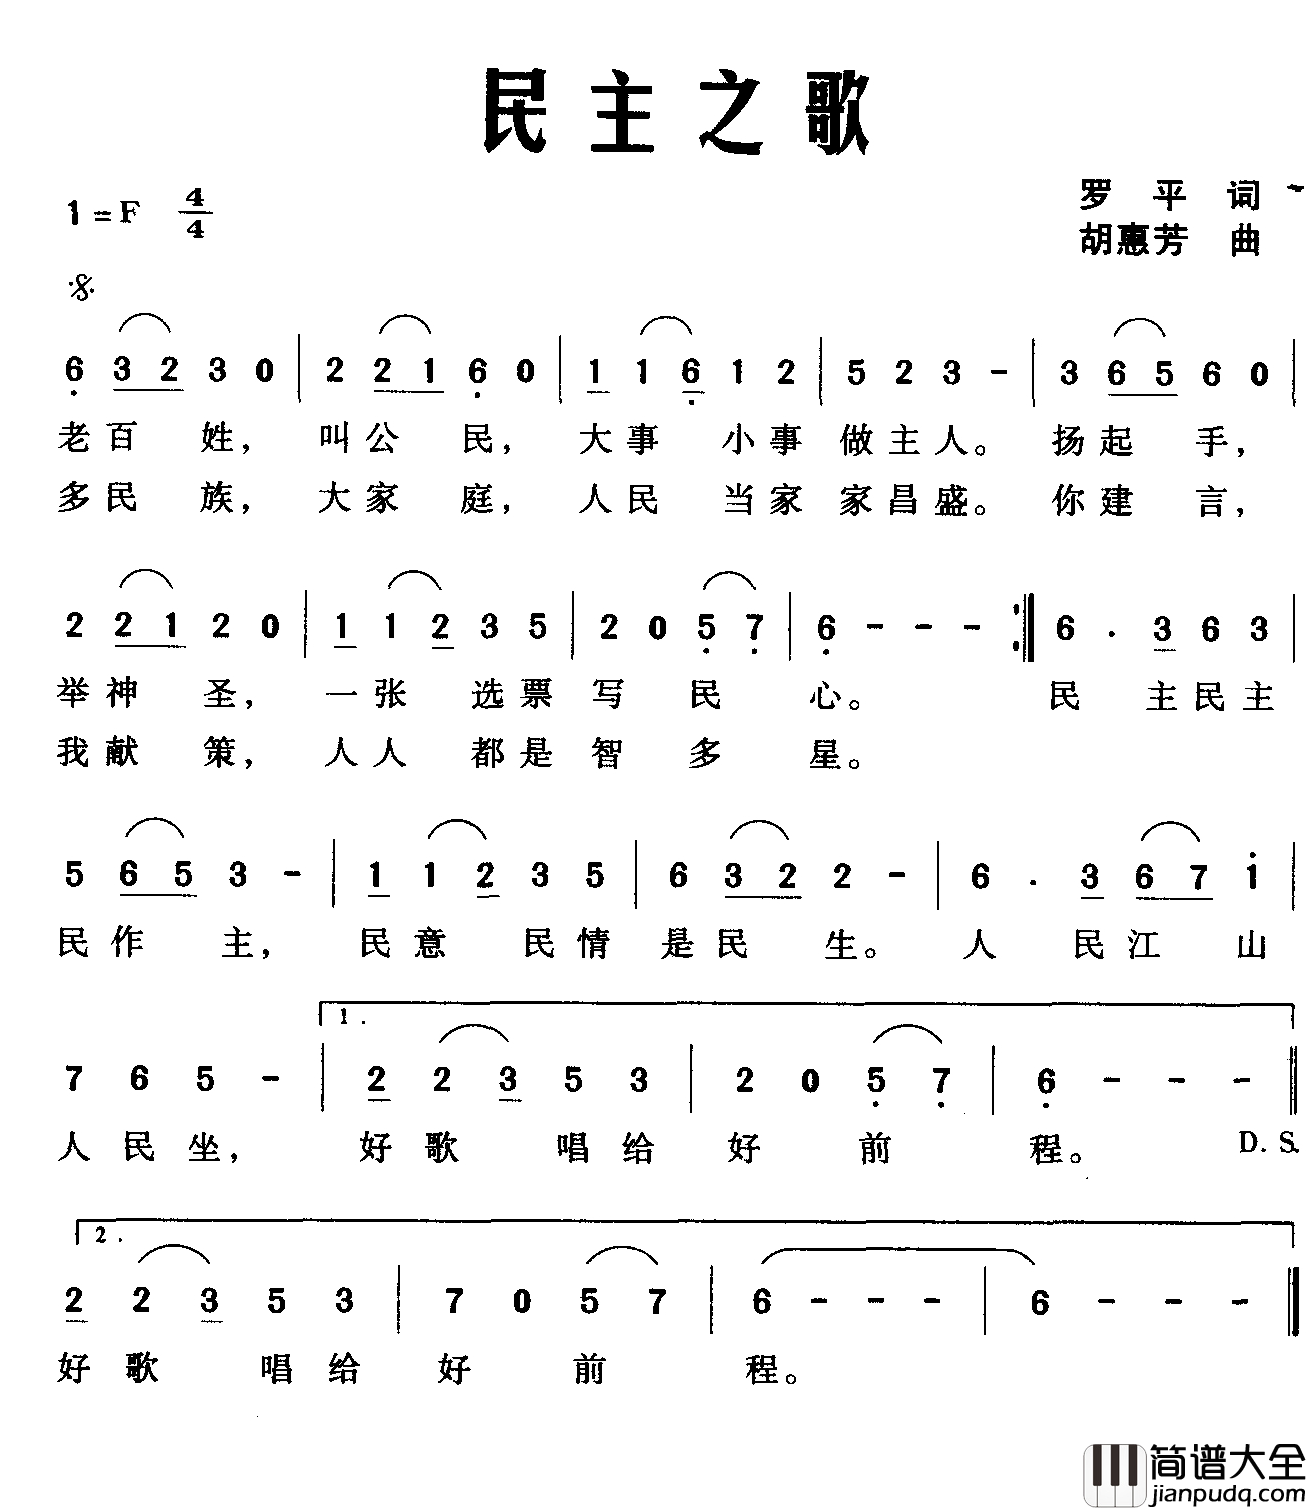 民主之歌
1=F 4/4
罗 平 词
胡惠芳 曲
6 3 2 3 0 | 2 2 1 6 0 | 1 1 6 1 2 | 5 2 3 - | 3 6 5 6 0 |
老百 姓, 叫公 民, 大事 小事做主人。扬起 手,
多民 族, 大家 庭, 人民 当家家昌盛。你建 言,
2 2 1 2 0 | 1 1 2 3 5 | 2 0 5 7 | 6 - - - :| 6 . 3 6 3 |
举神 圣, 一张 选票写 民 心。 民 主民主
我献 策, 人人 都是智 多 星。
5 6 5 3 - | 1 1 2 3 5 | 6 3 2 2 - | 6 . 3 6 7 1 |
民作 主, 民意 民情是民 生。 人 民江 山
1.
7 6 5 - | 2 2 3 5 3 | 2 0 5 7 | 6 - - - ‖
人民坐, 好歌 唱给 好 前 程。 D.S.
2.
2 2 3 5 3 | 7 0 5 7 | 6 - - - | 6 - - - ‖
好歌 唱给 好 前 程。
简谱大全
jianpudq.com